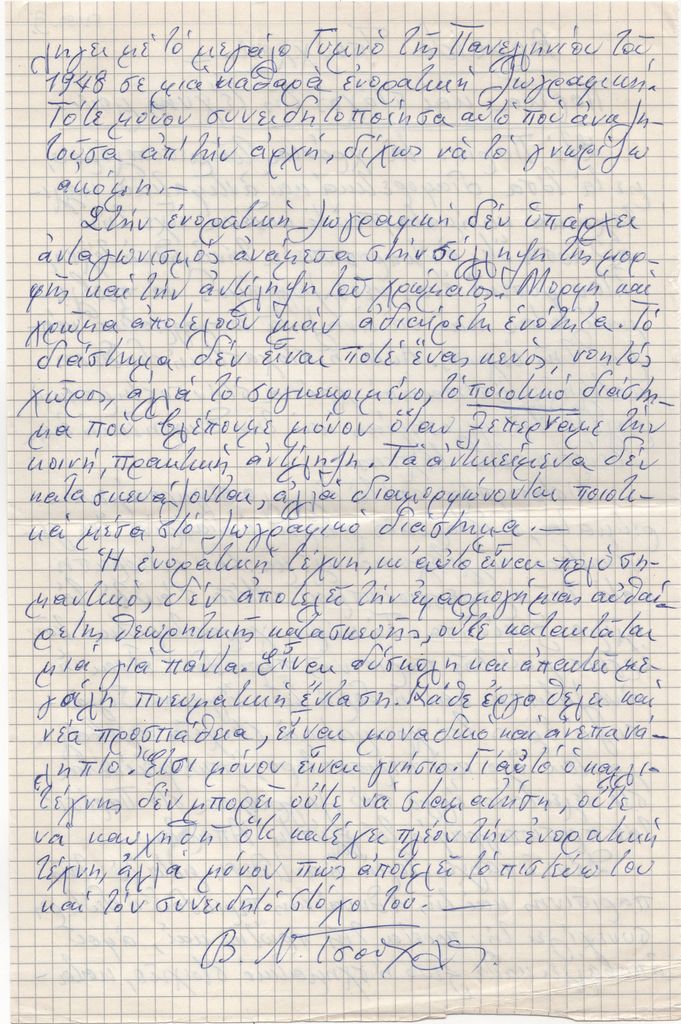 λήγει μέ τό μεγάλο Γυμνό τῆς Πανελληνίου τοῦ
1948 σε μιά καθαρά ἐνορατική ζωγραφική.
Τότε μόνον συνειδητοποίησα αὐτό πού ἀναζη-
τοῦσα ἀπ' τήν ἀρχή, δίχως νά τό γνωρίζω
ἀκόμη. —
Στήν ἐνορατική ζωγραφική δέν ὑπάρχει
ἀνταγωνισμός ἀνάμεσα στήν σύλληψη τῆς μορ-
φῆς καί τήν ἀντίληψη τοῦ χρώματος. Μορφή καί
χρῶμα ἀποτελοῦν μιάν ἀδιαίρετη ἑνότητα. Τό
διάστημα δέν εἶναι ποτέ ἕνας κενός, νοητός
χῶρος, ἀλλά τό συγκεκριμένο, τό ποιοτικό διάστη-
μα πού βλέπουμε μόνον ὅταν ξεπερνᾶμε τήν
κοινή, πρακτική ἀντίληψη. Τά ἀντικείμενα δέν
κατασκευάζονται, ἀλλά διαμορφώνονται ποιοτι-
κά μέσα στό ζωγραφικό διάστημα. —
Ἡ ἐνορατική τέχνη, κι' αὐτό εἶναι πολύ ση-
μαντικό, δέν ἀποτελεῖ τήν ἐφαρμογή μιας αὐθαί-
ρετης θεωρητικῆς κατασκευῆς, οὔτε κατακτᾶται
μιά γιά πάντα. Εἶναι δύσκολη καί ἀπαιτεῖ με-
γάλη πνευματική ἔνταση. Κάθε ἔργο θέλει καί
νέα προσπάθεια, εἶναι μοναδικό καί ἀνεπανά-
ληπτο. Ἔτσι μόνον εἶναι γνήσιο. Γι αὐτό ὁ καλλι-
τέχνης δέν μπορεῖ οὔτε νά σταματήση, οὔτε
νά καυχηθῆ ὅτι κατέχει πλέον τήν ἐνορατική
τέχνη, ἀλλά μόνον πώς ἀποτελεῖ τό πιστεύω του
καί τόν συνειδητό στόχο του. —
Β. Ν.